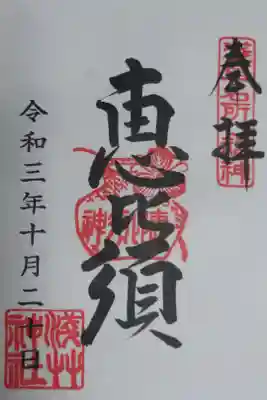 奉拝
恵比須
令和三年十月二十日
浅草神社